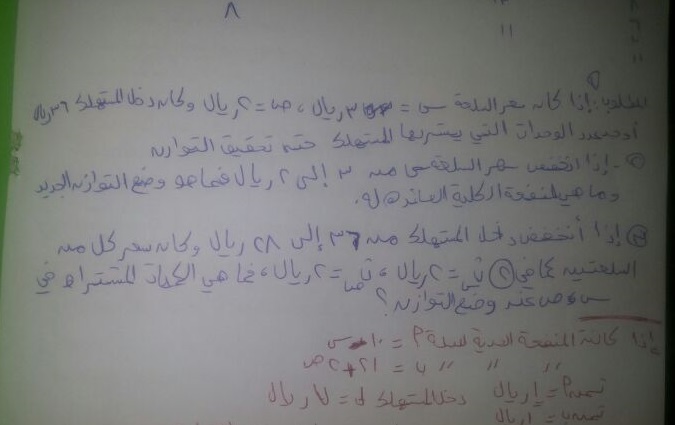 ٨
المطلوب: ١) إذا كانه سعر السلعة س = ٣ ريال، ص = ٢ ريال وكانه دخل المستهلك ٣٦ ريال
أوجد عدد الوحدات التي يشتريها المستهلك حتى تحقيق التوازن
٢- إذا انخفض سعر السلعة س من ٣ إلى ٢ ريال فما هو وضع التوازن الجديد
وما هي المنفعة الكلية العائدة له.
٣) إذا أنخفض دخل المستهلك من ٣٦ إلى ٢٨ ريال وكانه سعر كل من
السلعتين كما في ٢) ث س = ٢ ريال، ث ص = ٢ ريال، فما هي الكميات المشتراه في
س، ص عند وضع التوازن؟
إذا كانت المنفعة الحدية لسلعة أ = ١٠ + س
" " " ب = ٢١ + ٢ص
ثمن أ = ١ ريال دخل المستهلك = ٧ ريال
ثمن ب = ١ ريال